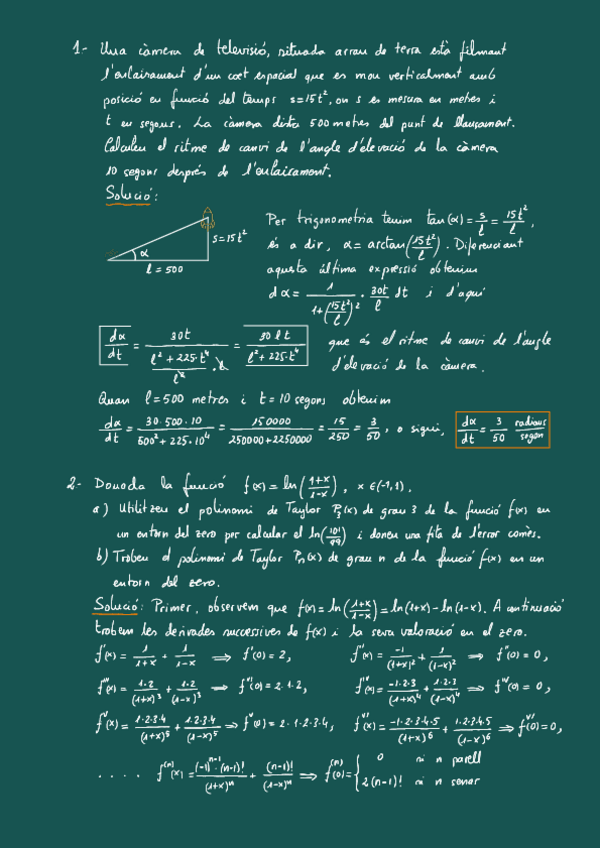 1- Una càmera de televisió, situada arran de terra està filmant
l'enlairament d'un coet espacial que es mou verticalment amb
posició en funció del temps s=15t², on s es mesura en metres i
t en segons. La càmera dista 500 metres del punt de llançament.
Calculeu el ritme de canvi de l'angle d'elevació de la càmera
10 segons després de l'enlairament.
Solució:
α
l = 500
s=15t²
Per trigonometria tenim tan(α) = s/l = 15t²/l,
és a dir, α = arctan(15t²/l). Diferenciant
aquesta última expressió obtenim
dα = 1/(1+(15t²/l)²) · 30t/l dt i d'aquí
dα/dt = 30t/((l²+225·t⁴)/l² · l) = 30lt/(l²+225·t⁴) que és el ritme de canvi de l'angle
d'elevació de la càmera.
Quan l=500 metres i t=10 segons obtenim
dα/dt = 30·500·10/(500²+225·10⁴) = 150000/(250000+2250000) = 15/250 = 3/50, o sigui, dα/dt = 3/50 radians/segon
2- Donada la funció f(x) = ln((1+x)/(1-x)), x∈(-1,1).
a) Utilitzeu el polinomi de Taylor P₃(x) de grau 3 de la funció f(x) en
un entorn del zero per calcular el ln(101/99) i doneu una fita de l'error comès.
b) Trobeu el polinomi de Taylor Pₙ(x) de grau n de la funció f(x) en un
entorn del zero.
Solució: Primer, observem que f(x) = ln((1+x)/(1-x)) = ln(1+x) - ln(1-x). A continuació
trobem les derivades successives de f(x) i la seva valoració en el zero.
f'(x) = 1/(1+x) + 1/(1-x) ⟹ f'(0) = 2, f''(x) = -1/(1+x)² + 1/(1-x)² ⟹ f''(0) = 0,
f'''(x) = 1·2/(1+x)³ + 1·2/(1-x)³ ⟹ f'''(0) = 2·1·2, f^IV(x) = -1·2·3/(1+x)⁴ + 1·2·3/(1-x)⁴ ⟹ f^IV(0) = 0,
f^V(x) = 1·2·3·4/(1+x)⁵ + 1·2·3·4/(1-x)⁵ ⟹ f^V(0) = 2·1·2·3·4, f^VI(x) = -1·2·3·4·5/(1+x)⁶ + 1·2·3·4·5/(1-x)⁶ ⟹ f^VI(0) = 0,
.... f^(n)(x) = (-1)^(n-1)·(n-1)!/(1+x)ⁿ + (n-1)!/(1-x)ⁿ ⟹ f^(n)(0) = { 0 si n parell
2(n-1)! si n senar